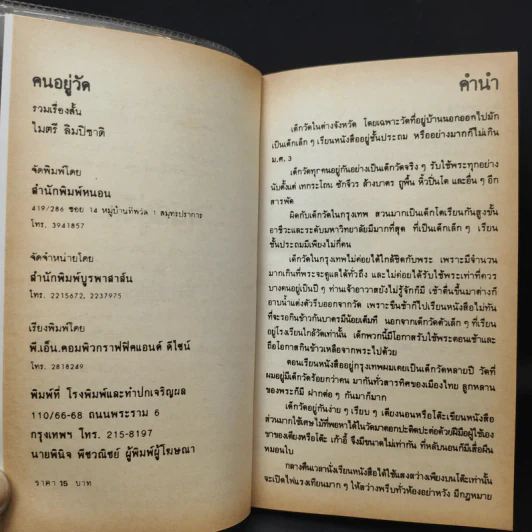 คนอยู่วัด
รวมเรื่องสั้น
ไมตรี ลิมปิชาติ
จัดพิมพ์โดย
สำนักพิมพ์หนอน
419/286 ซอย 14 หมู่บ้านทิพวัล 1 สมุทรปราการ
โทร. 3941857
จัดจำหน่ายโดย
สำนักพิมพ์บูรพาสาส์น
โทร. 2215672, 2237975
เรียงพิมพ์โดย
พี.เอ็น.คอมพิวกราฟฟิคแอนด์ ดีไซน์
โทร. 2818249
พิมพ์ที่ โรงพิมพ์และทำปกเจริญผล
110/66-68 ถนนพระราม 6
กรุงเทพฯ โทร. 215-8197
นายพินิจ พืชวณิชย์ ผู้พิมพ์ผู้โฆษณา
ราคา 15 บาท
คำนำ
เด็กวัดในต่างจังหวัด โดยเฉพาะวัดที่อยู่บ้านนอกออกไปมัก
เป็นเด็กเล็ก ๆ เรียนหนังสืออยู่ชั้นประถม หรืออย่างมากก็ไม่เกิน
ม.ศ. 3
เด็กวัดทุกคนอยู่กันอย่างเป็นเด็กวัดจริง ๆ รับใช้พระทุกอย่าง
นับตั้งแต่ เทกระโถน ซักจีวร ล้างบาตร ถูพื้น หิ้วปิ่นโต และอื่น ๆ อีก
สารพัด
ผิดกับเด็กวัดในกรุงเทพ ส่วนมากเป็นเด็กโตเรียนกันสูงขั้น
อาชีวะและระดับมหาวิทยาลัยมีมากที่สุด ที่เป็นเด็กเล็ก ๆ เรียน
ชั้นประถมมีเพียงไม่กี่คน
เด็กวัดในกรุงเทพไม่ค่อยได้ใกล้ชิดกับพระ เพราะมีจำนวน
มากเกินที่พระจะดูแลได้ทั่วถึง และไม่ค่อยได้รับใช้พระเท่าที่ควร
บางคนอยู่เป็นปี ๆ ท่านเจ้าอาวาสยังไม่รู้จักก็มี เช้าตื่นขึ้นมาต่างก็
อาบน้ำแต่งตัวรีบออกจากวัด เพราะขืนช้าก็ไปเรียนหนังสือไม่ทัน
ที่จะรอกินข้าวก้นบาตรมีน้อยเต็มที นอกจากเด็กวัดตัวเล็ก ๆ ที่เรียน
อยู่โรงเรียนใกล้วัดเท่านั้น เด็กพวกนี้มีโอกาสรับใช้พระตอนเช้าและ
ถือโอกาสกินข้าวเหลือจากพระไปด้วย
ตอนเรียนหนังสืออยู่กรุงเทพผมเคยเป็นเด็กวัดหลายปี วัดที่
ผมอยู่มีเด็กวัดร้อยกว่าคน มากันทั่วสารทิศของเมืองไทย ลูกหลาน
ของพระก็มี ฝากต่อ ๆ กันมาก็มาก
เด็กวัดอยู่กันง่าย ๆ เรียบ ๆ เตียงนอนหรือโต๊ะเขียนหนังสือ
ส่วนมากใช้เศษไม้ที่พอหาได้ในวัดมาตอกปะติดปะต่อด้วยฝีมือผู้ใช้เอง
ขาของเตียงหรือโต๊ะ เก้าอี้ จึงมีขนาดไม่เท่ากัน ที่หลับนอนก็มีเสื่อผืน
หมอนใบ
กลางคืนเวลานั่งเรียนหนังสือได้ใช้แสงสว่างเพียงบนโต๊ะเท่านั้น
จะเปิดไฟแรงเทียนมาก ๆ ให้สว่างพรึบทั่วห้องอย่าหวัง มีกฎหมาย